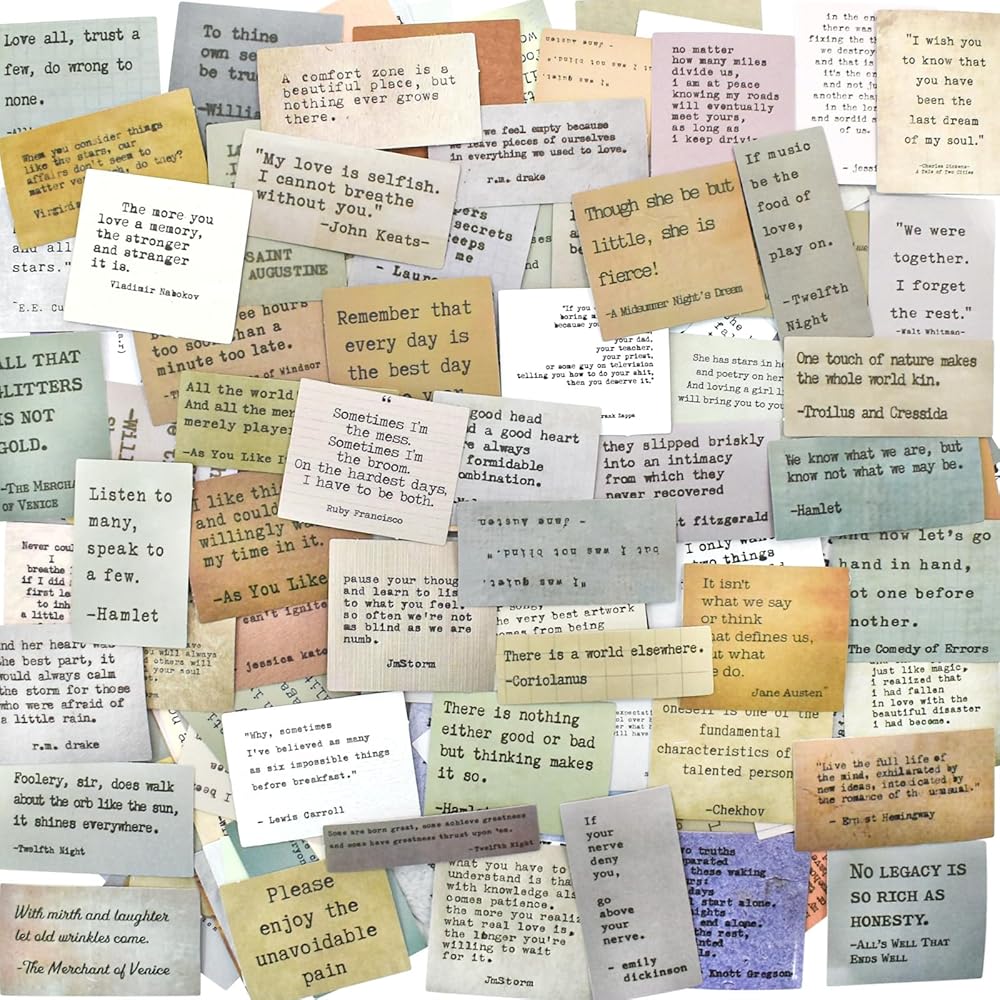 Love all, trust a
few, do wrong to
none.
To thine
own se
be tru
-Willi
A comfort zone is a
beautiful place, but
nothing ever grows
there.
- Jane Austen
but I was not bl
"I was quiet,
no matter
how many miles
divide us,
i am at peace
knowing my roads
will eventually
meet yours,
as long as
i keep drivi-
in the en
there was
fixing the th
we destroy
and that is
it's the en
and not ju
another chap
in the lon
and sordid s
of us.
- jessi
"I wish you
to know that
you have
been the
last dream
of my soul."
-Charles Dickens-
A Tale of Two Cities
When you consider things
like the stars, our
affairs don't seem to
matter very much, do they?
Virginia
we feel empty because
we leave pieces of ourselves
in everything we used to love.
r.m. drake
"My love is selfish.
I cannot breathe
without you."
-John Keats-
Though she be but
little, she is
fierce!
-A Midsummer Night's Dream
If music
be the
food of
love,
play on.
-Twelfth
Night
"We were
together.
I forget
the rest."
-Walt Whitman-
The more you
love a memory,
the stronger
and stranger
it is.
Vladimir Nabokov
and all
stars."
E.E. Cu
SAINT
AUGUSTINE
pers
secrets
eeps
me
- Laur
ee hours
too soon than a
minute too late.
of Windsor
Remember that
every day is
the best day
"If you
boring
because you
your dad,
your teacher,
your priest,
or some guy on television
telling you how to do your shit,
then you deserve it."
rank Zappa
She has stars in he
and poetry on her
And loving a girl l
will bring you to you
One touch of nature makes
the whole world kin.
-Troilus and Cressida
ALL THAT
GLITTERS
IS NOT
GOLD.
-The Mercha
of Venice
All the world
And all the men
merely player
-As You Like I
"
Sometimes I'm
the mess.
Sometimes I'm
the broom.
On the hardest days,
I have to be both.
Ruby Francisco
good head
d a good heart
e always
formidable
ombination.
they slipped briskly
into an intimacy
from which they
never recovered
t fitzgerald
We know what we are, but
know not what we may be.
-Hamlet
Listen to
many,
speak to
a few.
-Hamlet
I like thi
and could
willingly wa
my time in it.
-As You Like
- Jane Austen
but I was not blind."
"I was quiet,
I only wan
two things
And now let's go
hand in hand,
not one before
nother.
The Comedy of Errors
Never coul
I
breathe
if I did
first le
to inh
a little
pause your thoug
and learn to lis
to what you feel.
so often we're not
as blind as we are
numb.
JmStorm
It isn't
what we say
or think
that defines us,
but what
we do.
Jane Austen
can't ignite
jessica kato
song,
he very best artwork
comes from being
There is a world elsewhere.
-Coriolanus
nd her heart was
he best part, it
would always calm
the storm for those
who were afraid of
a little rain.
r.m. drake
you will always
others will
your soul
just like magic,
i realized that
i had fallen
in love with the
beautiful disaster
i had become.
"Why, sometimes
I've believed as many
as six impossible things
before breakfast."
- Lewis Carroll
There is nothing
either good or bad
but thinking makes
it so.
-Hamlet
oneself is one of the
fundamental
characteristics of
talented person
-Chekhov
"Live the full life of
the mind, exhilarated by
new ideas, intoxicated by
the romance of the unusual."
- Ernest Hemingway
Foolery, sir, does walk
about the orb like the sun,
it shines everywhere.
-Twelfth Night
Some are born great, some achieve greatness
and some have greatness thrust upon 'em.
-Twelfth Night
If
your
nerve
deny
you,
go
above
your
nerve.
- emily
dickinson
wo truths
parated
these waking
rs:
days
start alone.
ights
end alone.
the rest,
nted
ls.
Knott Gregson
No legacy is
so rich as
honesty.
-All's Well That
Ends Well
With mirth and laughter
let old wrinkles come.
-The Merchant of Venice
Please
enjoy the
unavoidable
pain
what you have to
understand is tha
with knowledge als
comes patience.
the more you reali
what real love is,
the longer you're
willing to wait
for it.
JmStorm